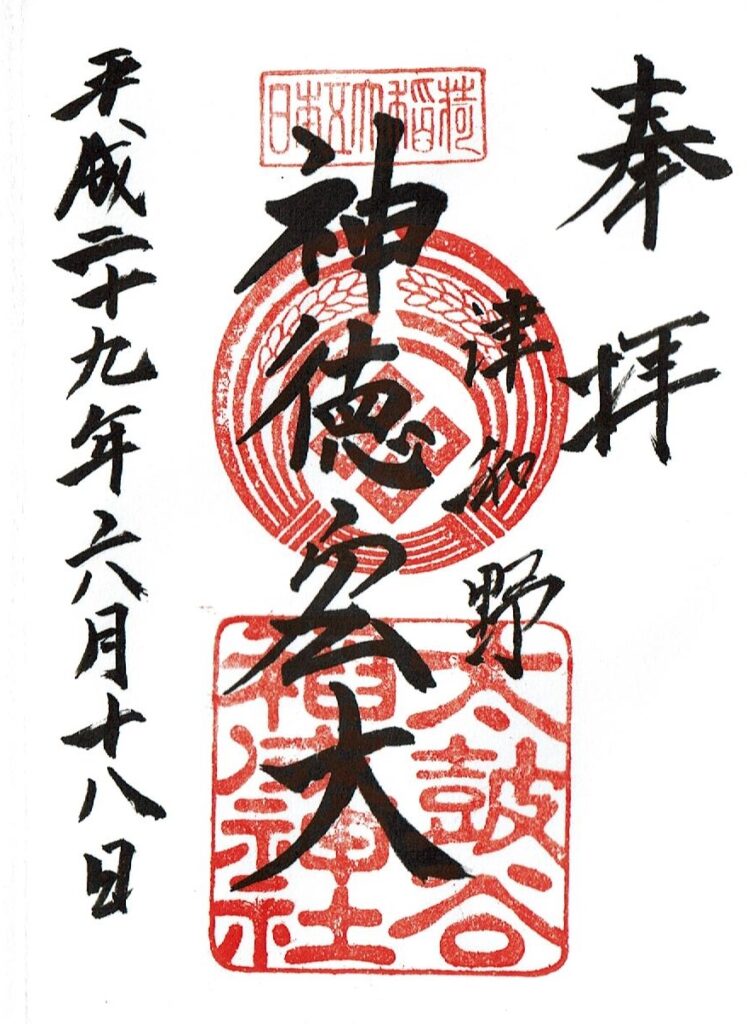 奉拝
津和野
日本五大稲荷
神徳宏大
太鼓谷
稲成神社
平成二十九年六月十八日